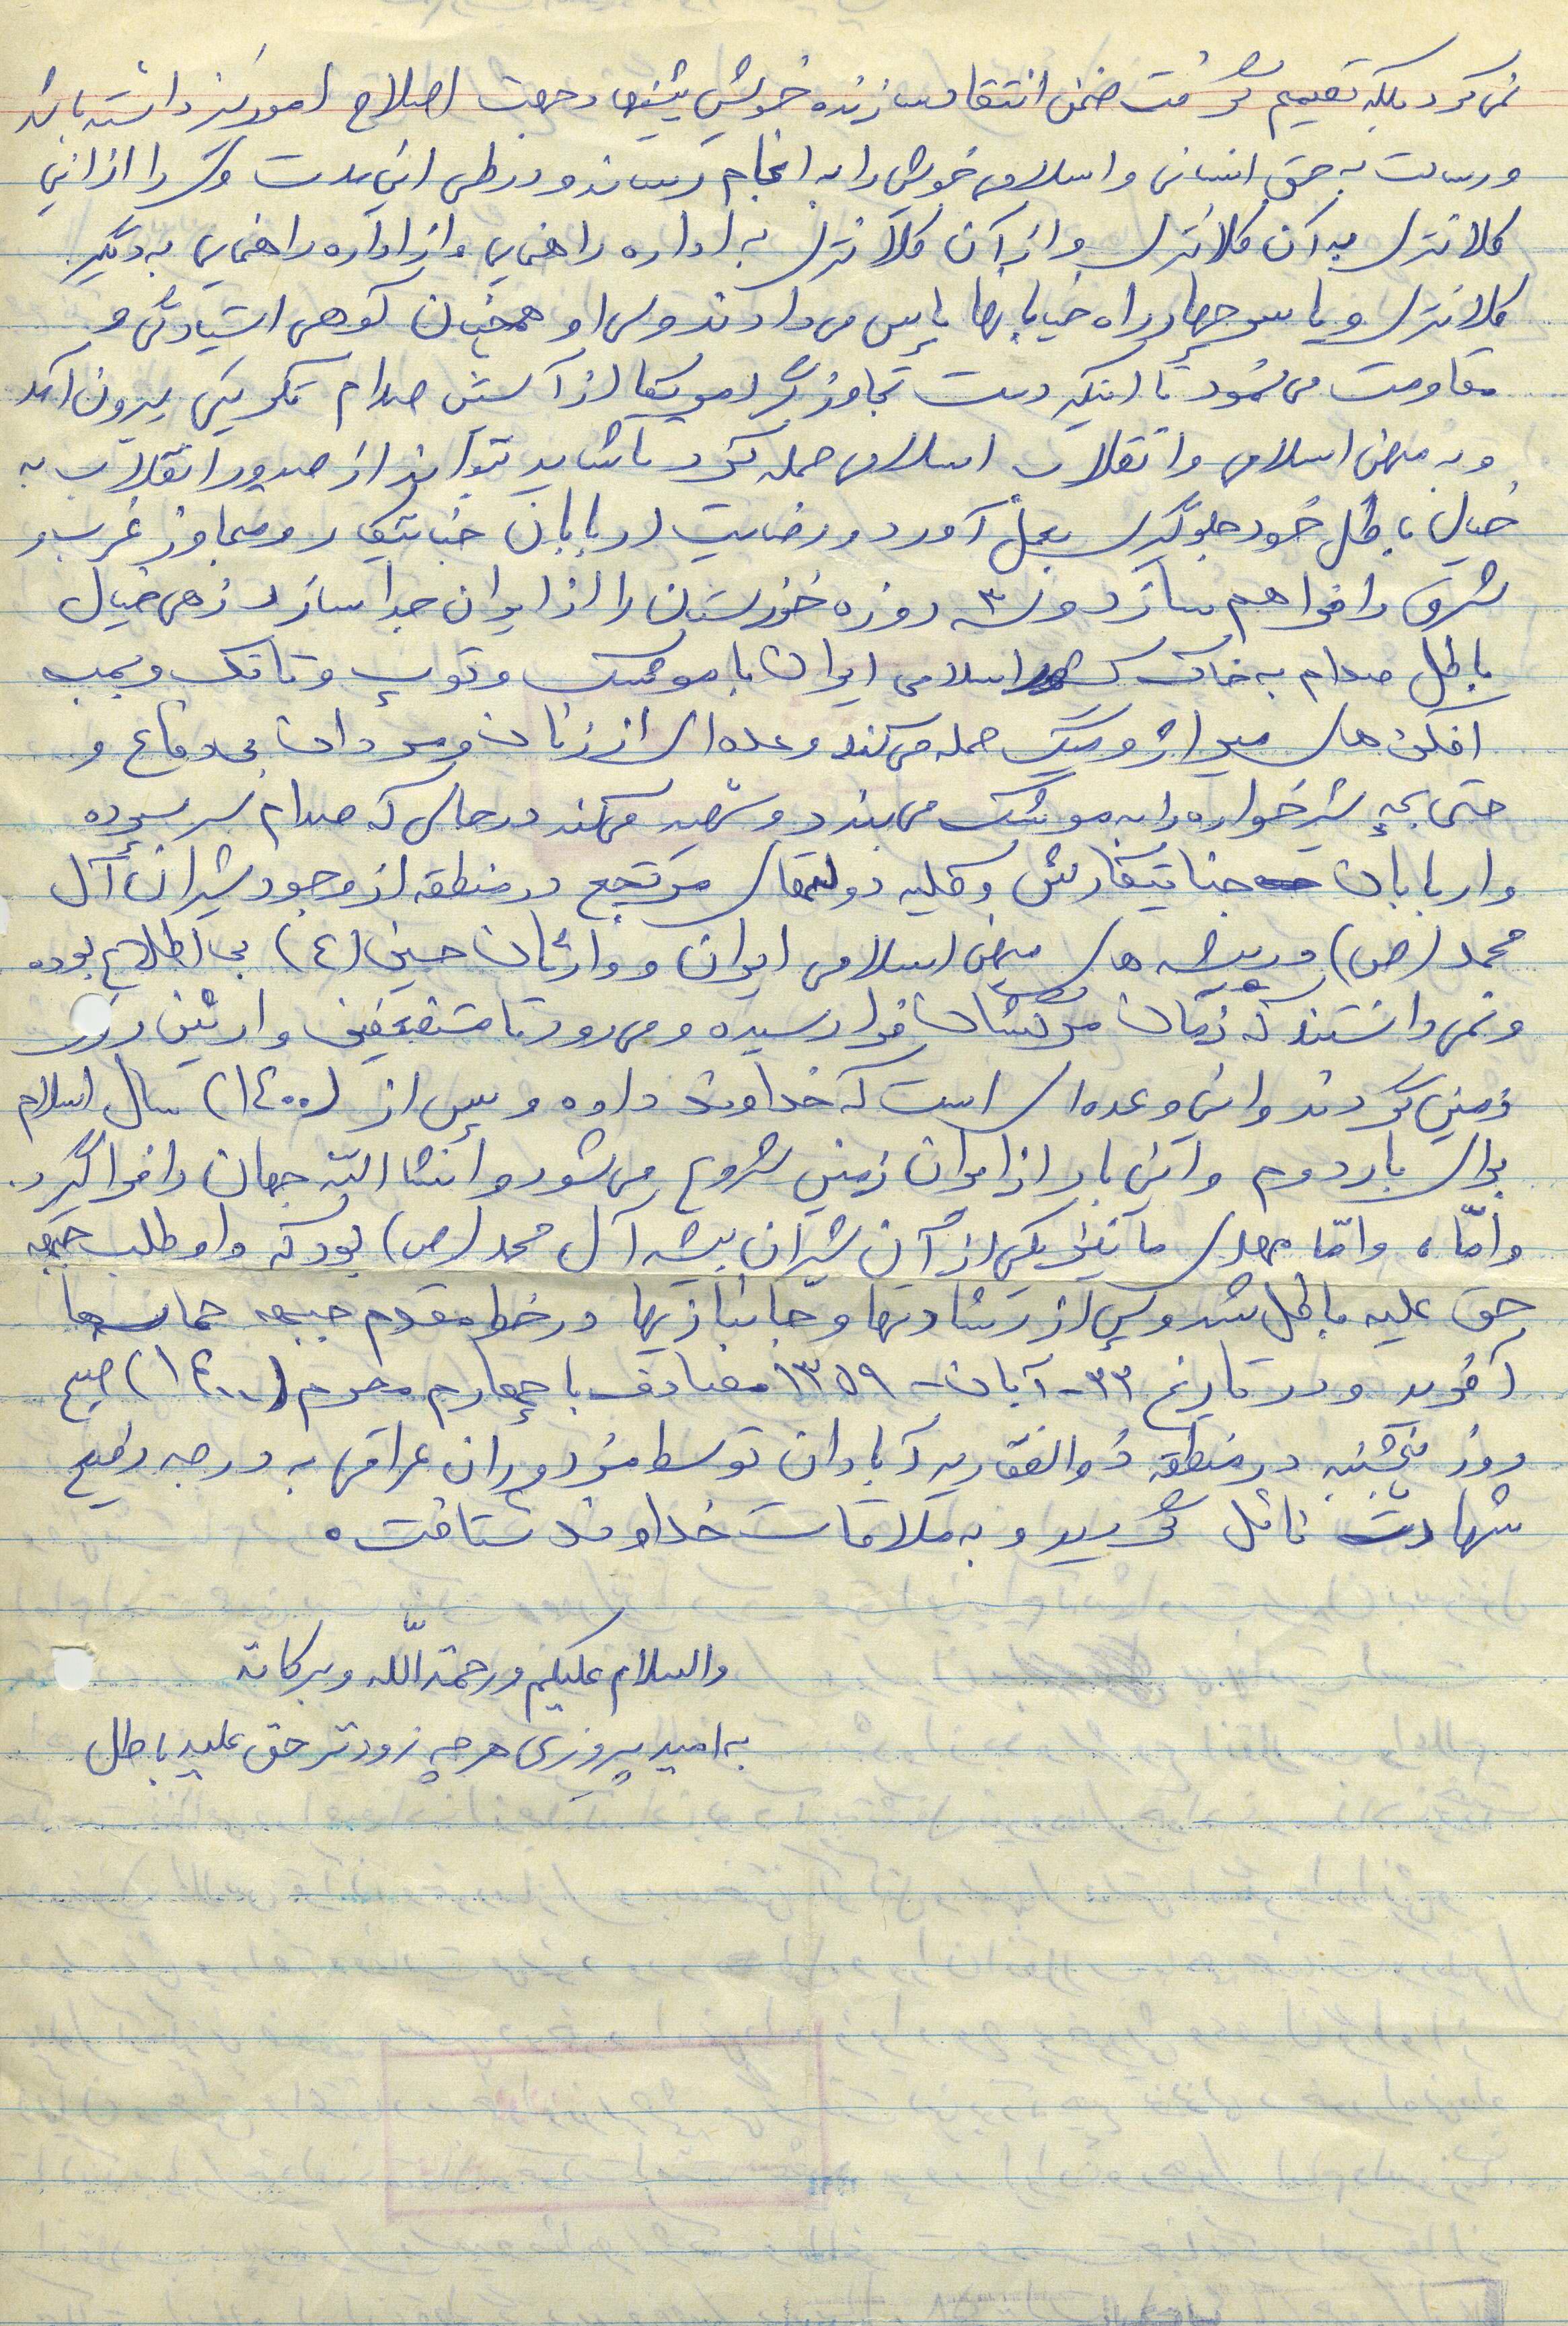 نمی کرد بلکه تصمیم گرفت ضمن انتقاد سازنده خویش پیشنهاد جهت اصلاح امور نیز داشته باشد
و رسالت به حق انسانی و اسلامی خویش را به انجام رساند و در طی این مدت وی را از این
کلانتری به آن کلانتری و از آن کلانتری به اداره راهنمایی و از اداره راهنمایی به دیگر
کلانتری و یا سر چهار راه خیابانها پاس می دادند ولی او همچنان کوهی استیادگی و
مقاومت می نمود تا اینکه دست تجاوزگر امریکا از آستین صدام تکریتی بیرون آمد
و به میهن اسلامی و انقلاب اسلامی حمله کرد تا شاید بتواند از صدور انقلاب به
خیال باطل خود جلوگیری بعمل آورد و رضایت اربابان جنایتکار و متجاوز غرب و
شرق را فراهم سازد و ۳ روزه خوزستان را از ایران جدا سازد زهی خیال
باطل صدام به خاک کشور اسلامی ایران با موشک و توپ و تانک و بمب
افکن های میراژ و میگ حمله می کند و عده ای از زنان و مردان بی دفاع و
حتی بچه شیرخواره را به موشک می بندد و شهید می کند در حالی که صدام سر سپرده
و اربابان جنایتکارش و کلیه دولتهای مرتجع در منطقه از وجود شیران آل
محمد (ص) و بیشه های میهن اسلامی ایران و وارثان حسین (ع) بی اطلاع بوده
و نمی دانستند که زمان مرگشان فرا رسیده و می رود تا مستضعفین وارثین روی
زمین گردند و این وعده ای است که خداوند داده و پس از (۱۴۰۰) سال اسلام
برای بار دوم و این بار از ایران زمین شروع می شود و انشا الله جهان را فرا گیرد.
و امّا، و امّا مهدی ما نیز یکی از آن شیران بیشه آل محمد (ص) بود که داوطلب جبهه
حق علیه باطل شد و پس از رشادتها و جانبازیها در خط مقدم جبهه حماسه ها
آفرید و در تاریخ ۲۲-آبان-۱۳۵۹ مصادف با چهارم محرم (۱۴۰۰) صبح
روز پنجشنبه در منطقه ذوالفقاریه آبادان توسط مزدوران عراقی به درجه رفیع
شهادت نائل گردید و به ملاقات خداوند شتافت.
والسلام علیکم و رحمة الله و برکاته
به امید پیروزی هر چه زودتر حق علیه باطل